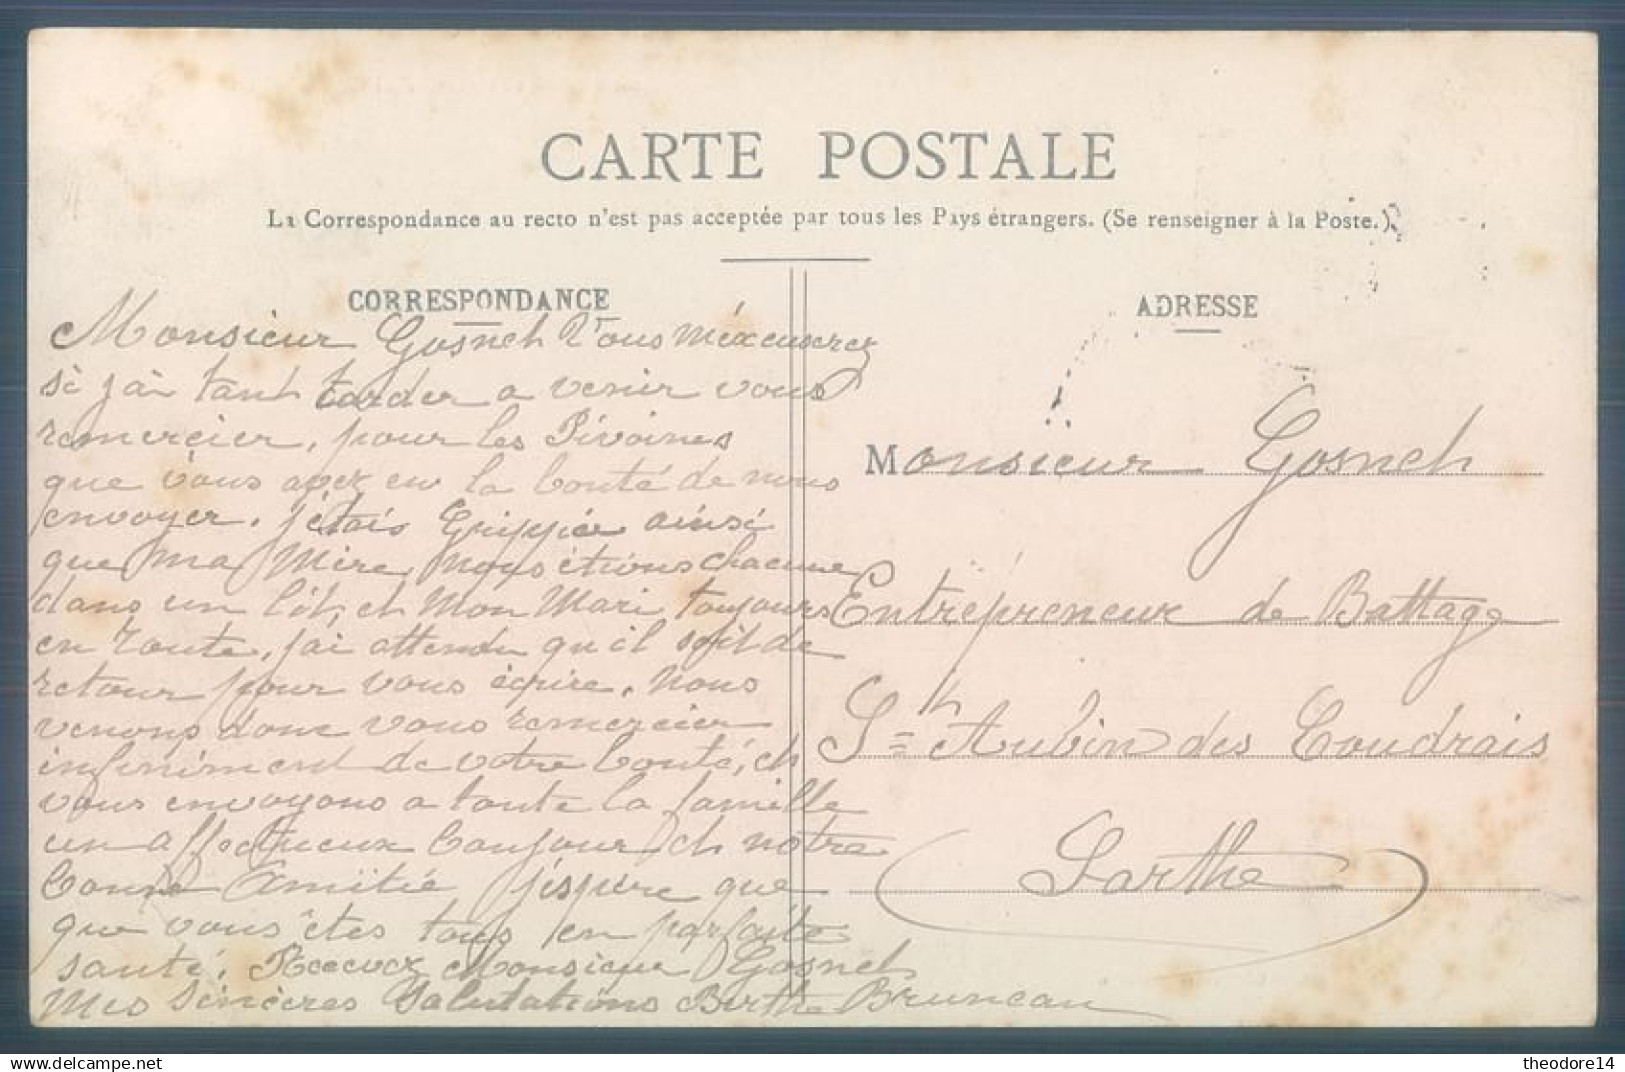 CARTE POSTALE
La Correspondance au recto n'est pas acceptée par tous les Pays étrangers. (Se renseigner à la Poste.)
CORRESPONDANCE
Monsieur Gosnet Vous méxcuserez
si j'ai tant tarder a venir vous
remercier, pour les Pivoines
que vous avez eu la bonté de nous
envoyer. j'étais Grippée ainsi
que ma Mère, Nous étions chacune
dans un lit, et Mon Mari toujours
en route, j'ai attendu qu'il soit de
retour pour vous écrire. Nous
venons donc vous remercier
infiniment de votre bonté, et
vous envoyons a toute la famille
un affectueux bonjour et notre
bonne Amitié j'espère que
que vous êtes tous en parfaite
santé. Recevez Monsieur Gosnet
Mes Sincères Salutations Berthe Bruneau
ADRESSE
Monsieur Gosnet
Entrepreneur de Battage
St Aubin des Coudrais
Sarthe
theodore14